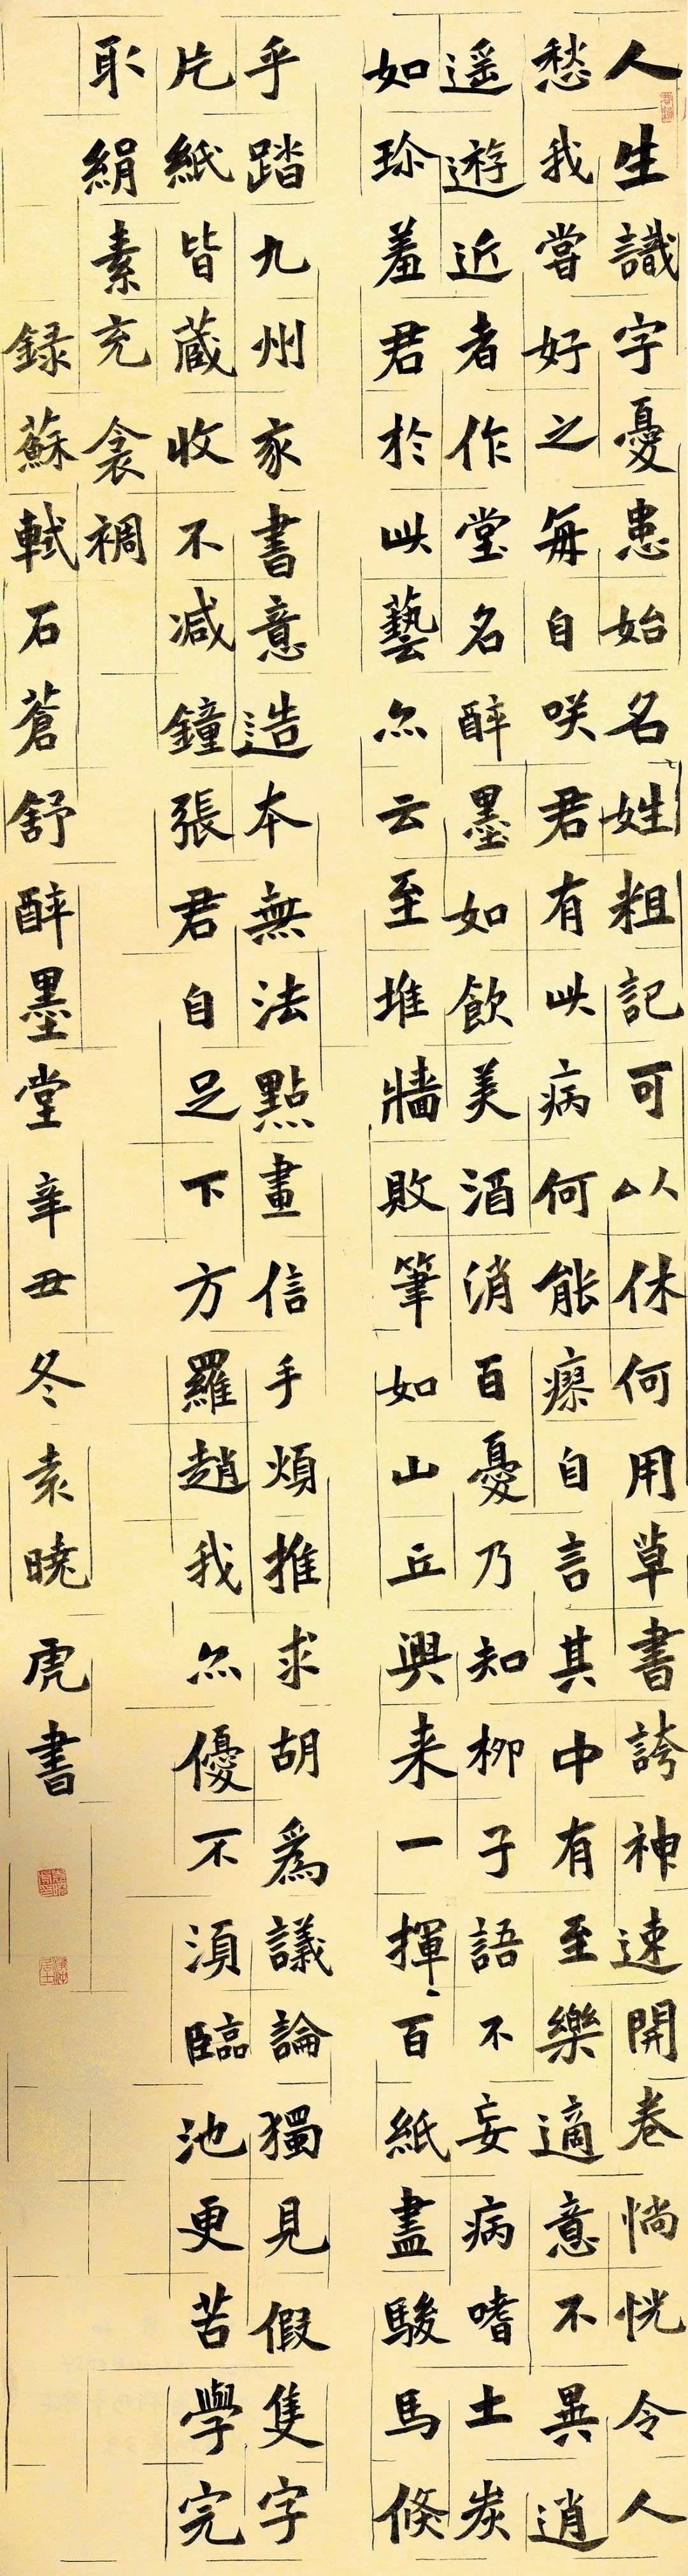 人生識字憂患始名姓粗記可以休何用草書誇神速開卷惝恍令人
愁我嘗好之每自咲君有此病何能瘳自言其中有至樂適意不異逍
遥遊近者作堂名醉墨如飲美酒消百憂乃知柳子語不妄病嗜土炭
如珎羞君於此藝亦云至堆牆敗筆如山丘興来一揮百紙盡駿馬倏
乎踏九州我書意造本無法點畫信手煩推求胡爲議論獨見假隻字
片紙皆蔵收不减鐘張君自足下方羅趙我亦優不湏臨池更苦學完
取絹素充衾裯
録蘇軾石蒼舒醉墨堂辛丑冬袁曉虎書